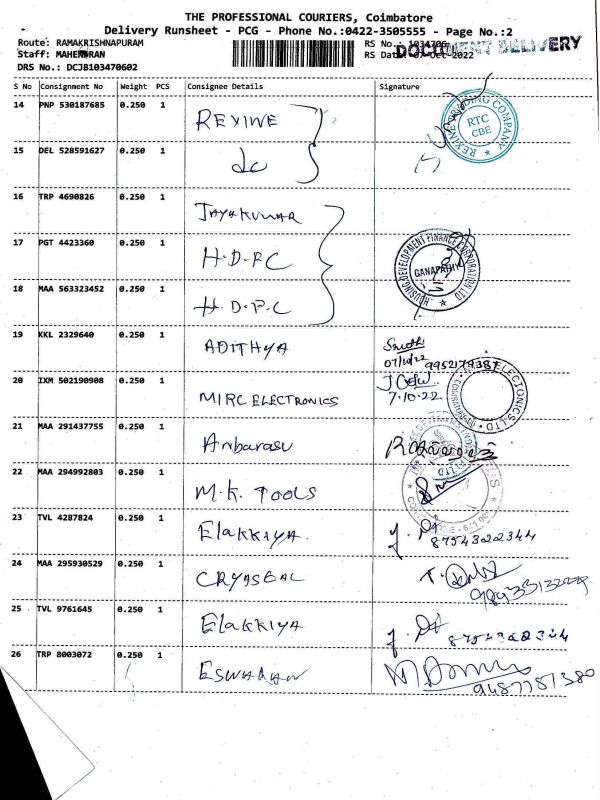 THE PROFESSIONAL COURIERS, Coimbatore
Delivery Runsheet - PCG - Phone No.:0422-3505555 - Page No.:2
Route: RAMAKRISHNAPURAM RS No.: 1034706
Staff: MAHENDRAN RS Date: 07-Oct-2022
DOCUMENT DELIVERY
DRS No.: DCJB103470602
S No Consignment No Weight PCS Consignee Details Signature
14 PNP 530187685 0.250 1 REXINE
REXINE TRADING COMPANY
RTC
CBE
15 DEL 528591627 0.250 1 do
16 TRP 4690826 0.250 1 JAYAKUMAR
17 PGT 4423360 0.250 1 H.D.F.C
HOUSING DEVELOPMENT FINANCE CORPORATION LTD
GANAPATHY
18 MAA 563323452 0.250 1 H.D.F.C
19 KKL 2329640 0.250 1 ADITHYA
07/10/22 9952179387
20 IXM 502190908 0.250 1 MIRC ELECTRONICS
7.10.22
21 MAA 291437755 0.250 1 Anbarasu
22 MAA 294992803 0.250 1 M.K. TOOLS
23 TVL 4287824 0.250 1 Elakkiya
8754322344
24 MAA 295930529 0.250 1 CRYASEAL
25 TVL 9761645 0.250 1 Elakkiya
8754322344
26 TRP 8003072 0.250 1 ESWARAN
9487787380